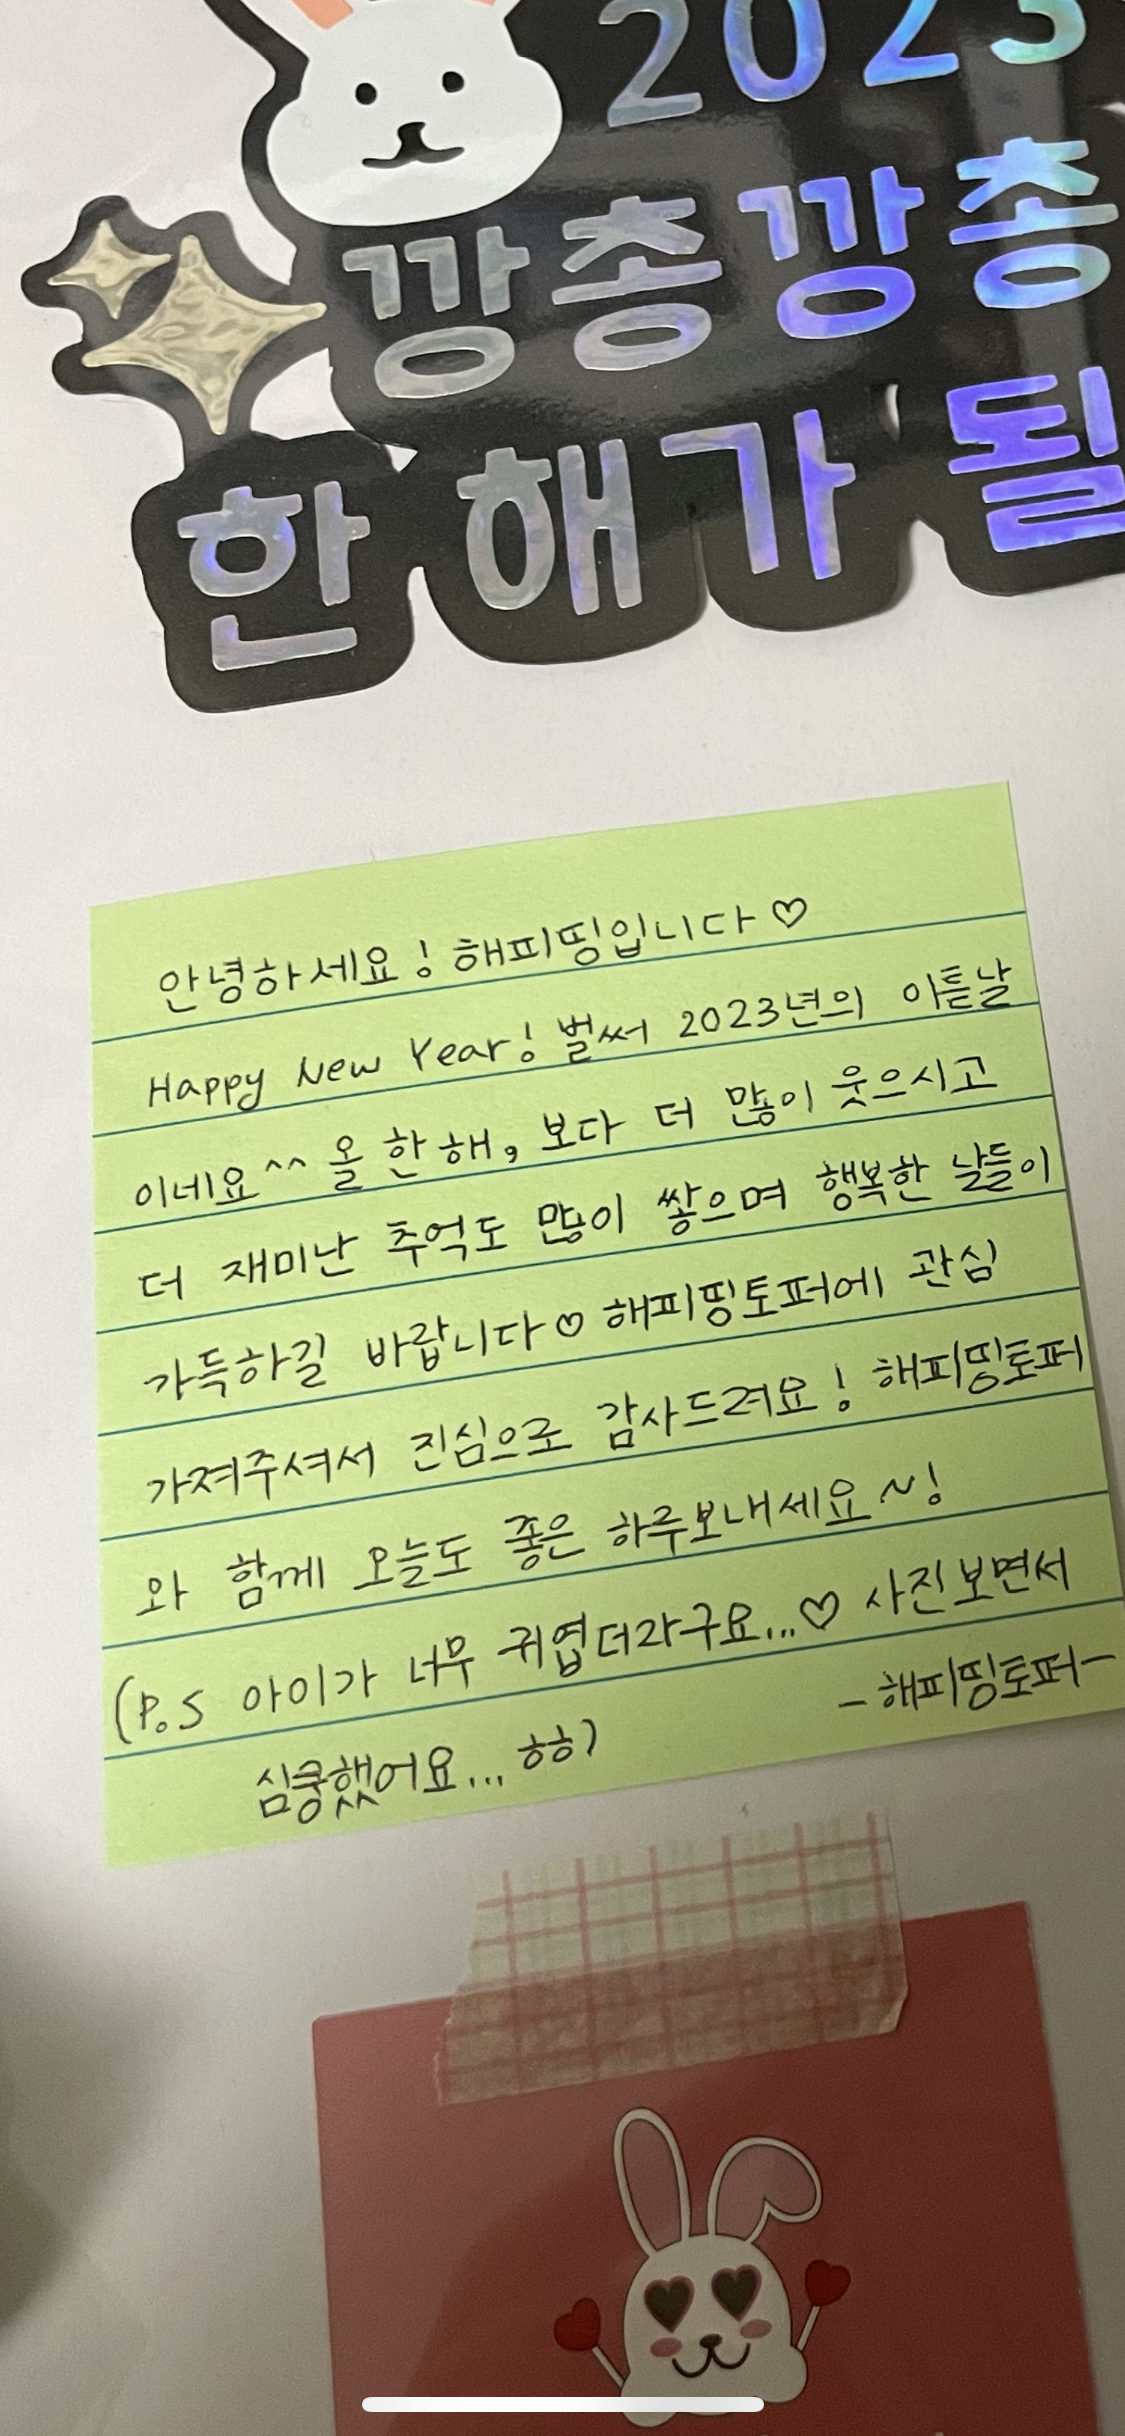 2023
깡총깡총
한 해가 될
안녕하세요! 해피띵입니다♡
Happy New Year! 벌써 2023년의 이튿날
이네요^^ 올 한 해, 보다 더 많이 웃으시고
더 재미난 추억도 많이 쌓으며 행복한 날들이
가득하길 바랍니다♡ 해피띵토퍼에 관심
가져주셔서 진심으로 감사드려요! 해피띵토퍼
와 함께 오늘도 좋은 하루보내세요~!
(P.S 아이가 너무 귀엽더라구요...♡ 사진보면서
심쿵했어요... ㅎㅎ)
-해피띵토퍼-